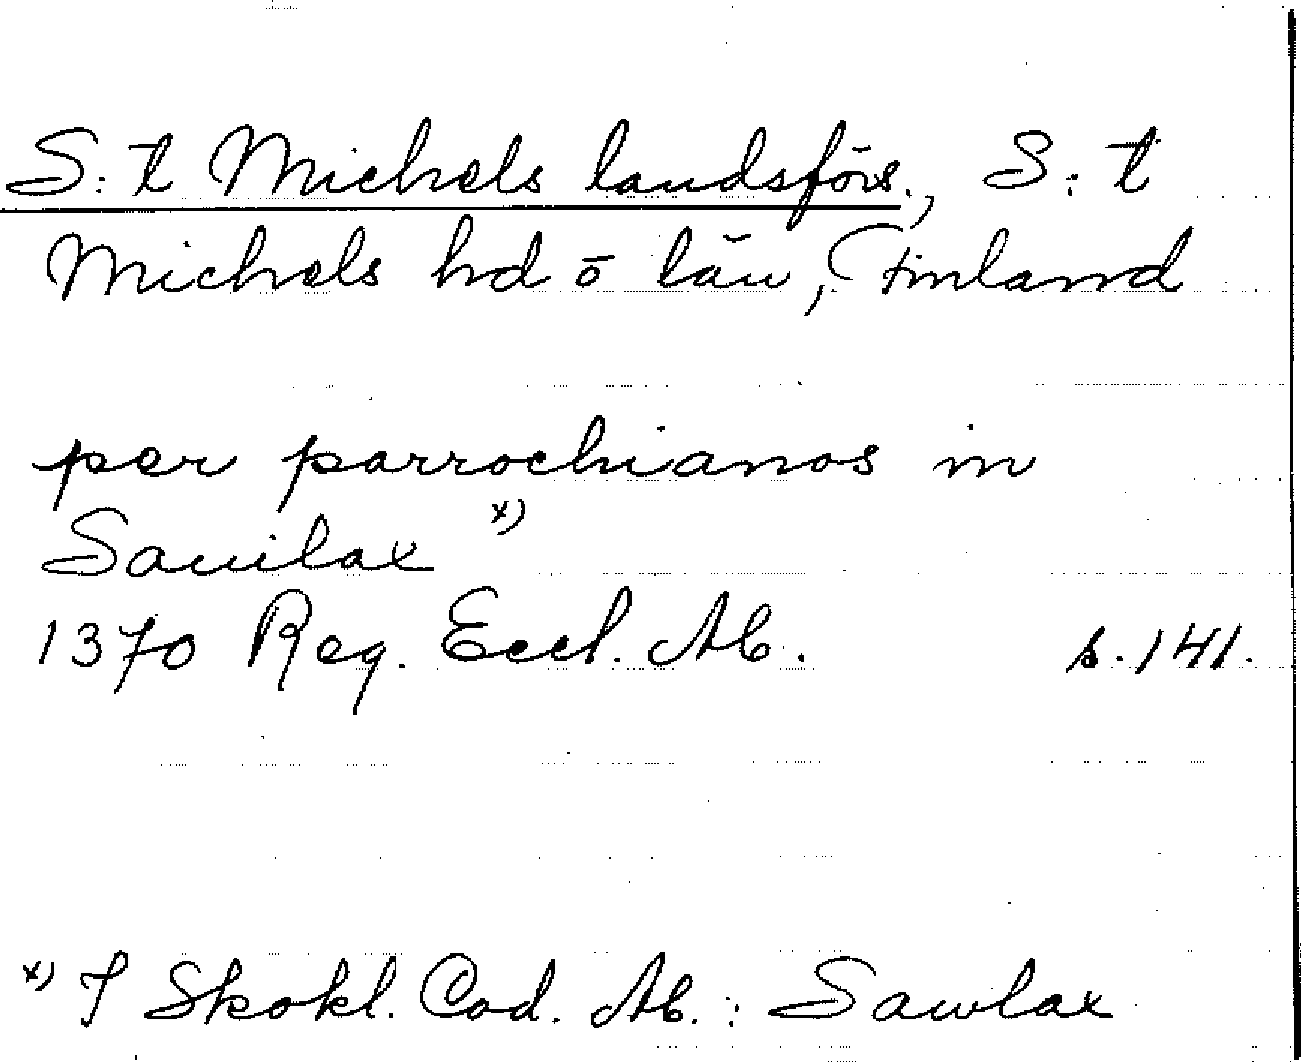 S:t Michels landsförs., S:t
Michels hd o län, Finland
per parrochianos in
Sauilax x)
1370 Reg. Eccl. Ab. s. 141.
x) I Skokl. Cod. Ab.: Sawlax